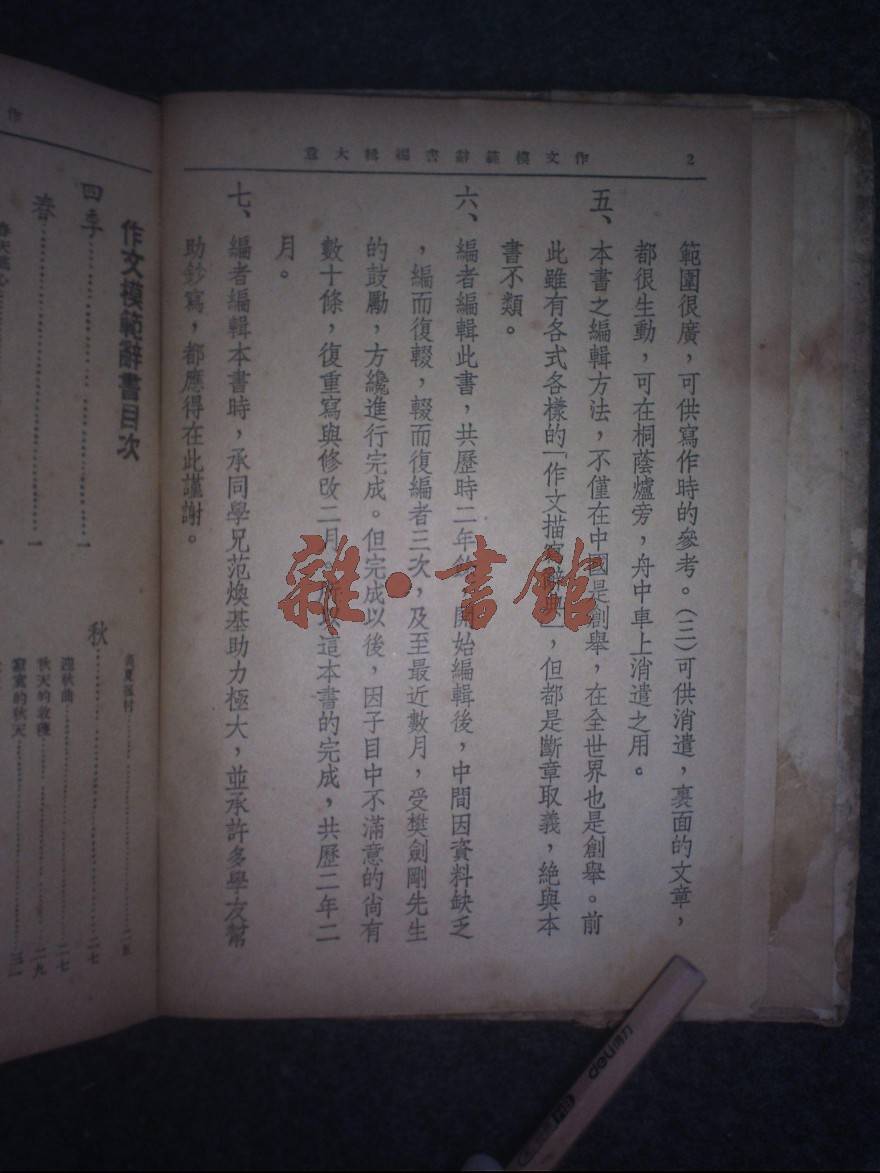 2　作文模範辭書編輯大意
範圍很廣，可供寫作時的參考。(三)可供消遣，裏面的文章，
都很生動，可在桐蔭爐旁，舟中車上消遣之用。
五、本書之編輯方法，不僅在中國是創舉，在全世界也是創舉。前
此雖有各式各樣的「作文描寫辭典」，但都是斷章取義，絕與本
書不類。
六、編者編輯此書，共歷時二年餘，開始編輯後，中間因資料缺乏
，編而復輟，輟而復編者三次，及至最近數月，受樊劍剛先生
的鼓勵，方纔進行完成。但完成以後，因子目中不滿意的尙有
數十條，復重寫與修改二月。這本書的完成，共歷二年二
月。
七、編者編輯本書時，承同學兄范煥基助力極大，並承許多學友幫
助鈔寫，都應得在此謹謝。
作
作文模範辭書目次
四季……一
春……一
秋……二七
迎秋曲……二七
秋天的收穫……二九
寂寞的秋天……三一
雜·書館
deli得力